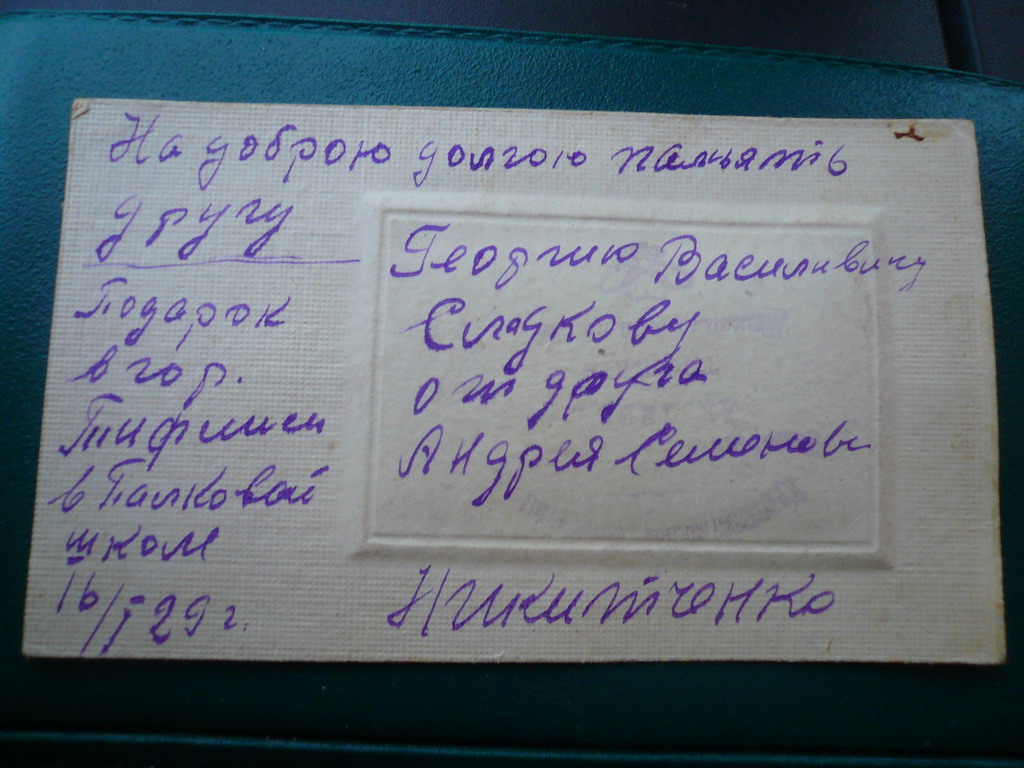 На доброю долгою памьять
другу
Георгию Василивичу
Сладкову
от друга
Андрея Семенов
Подарок
в гор.
Тифлиси
в Палковой
школе
16/I 29 г.
Никитченко